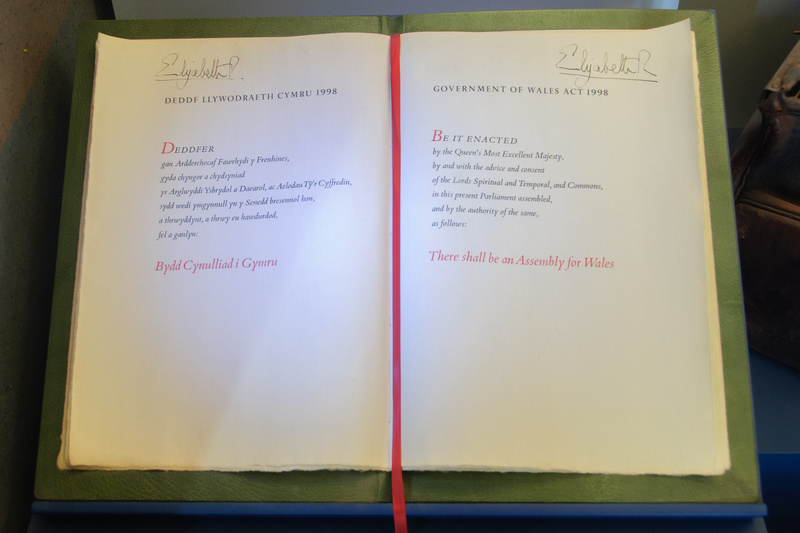 Elizabeth R.
DEDDF LLYWODRAETH CYMRU 1998
DEDDFER
gan Ardderchocaf Fawrhydi y Frenhines,
gyda chyngor a chydsyniad
yr Arglwyddi Ysbrydol a Daearol, ac Aelodau Tŷ'r Cyffredin,
sydd wedi ymgynnull yn y Senedd bresennol hon,
a thrwyddynt, a thrwy eu hawdurdod,
fel a ganlyn:
Bydd Cynulliad i Gymru
Elizabeth R
GOVERNMENT OF WALES ACT 1998
BE IT ENACTED
by the Queen's Most Excellent Majesty,
by and with the advice and consent
of the Lords Spiritual and Temporal, and Commons,
in this present Parliament assembled,
and by the authority of the same,
as follows:
There shall be an Assembly for Wales